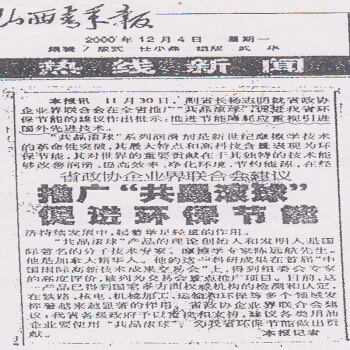 山西青年报
2000年12月4日 星期一
编辑/版式 任小燕 组版 武华
热线新闻
本报讯 11月30日,副省长杨志明就省政协
企业界联合会在全省推广“共晶滚球”,促进我省环
保节能的建议作出批示:推进节能降耗应重视引进
国外先进技术。
“共晶滚球”系列润滑剂是新世纪摩擦学技术
的革命性突破,其最大特点和高科技含量表现为环
保节能,其对世界的重要贡献在于其独界的技术能
够改善润滑,提高效率,净化环境,节约能源,在经
省政协企业界联合会建议
推广“共晶滚球”
促进环保节能
济持续发展中,起着举足轻重的作用。
“共晶滚球”产品的理论创始人和发明人是国
际著名的分子技术专家、摩擦学专家陈远航先生。
他是加拿大籍华人。他的这一科研成果在首届“中
国国际高新技术成果交易会”上,得到组委会专家
的高度评价,被列为交易会重点推广项目。目前,这
一产品已得到国家多方面权威机构的检测和认定,
在铁路、核电、机械加工、运输和环保等多个领域发
挥着越来越显著的作用。省政协企业界联合会建
议:我省各级政府予以重视和支持,建议各类用油
企业要使用“共晶滚球”,为我省环保节能做出贡
献。 本报记者